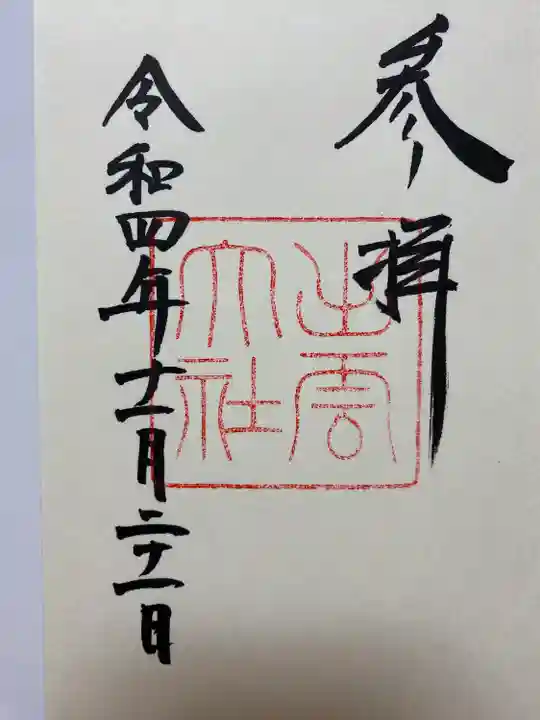 参拝
出雲
大社
令和四年十一月二十一日